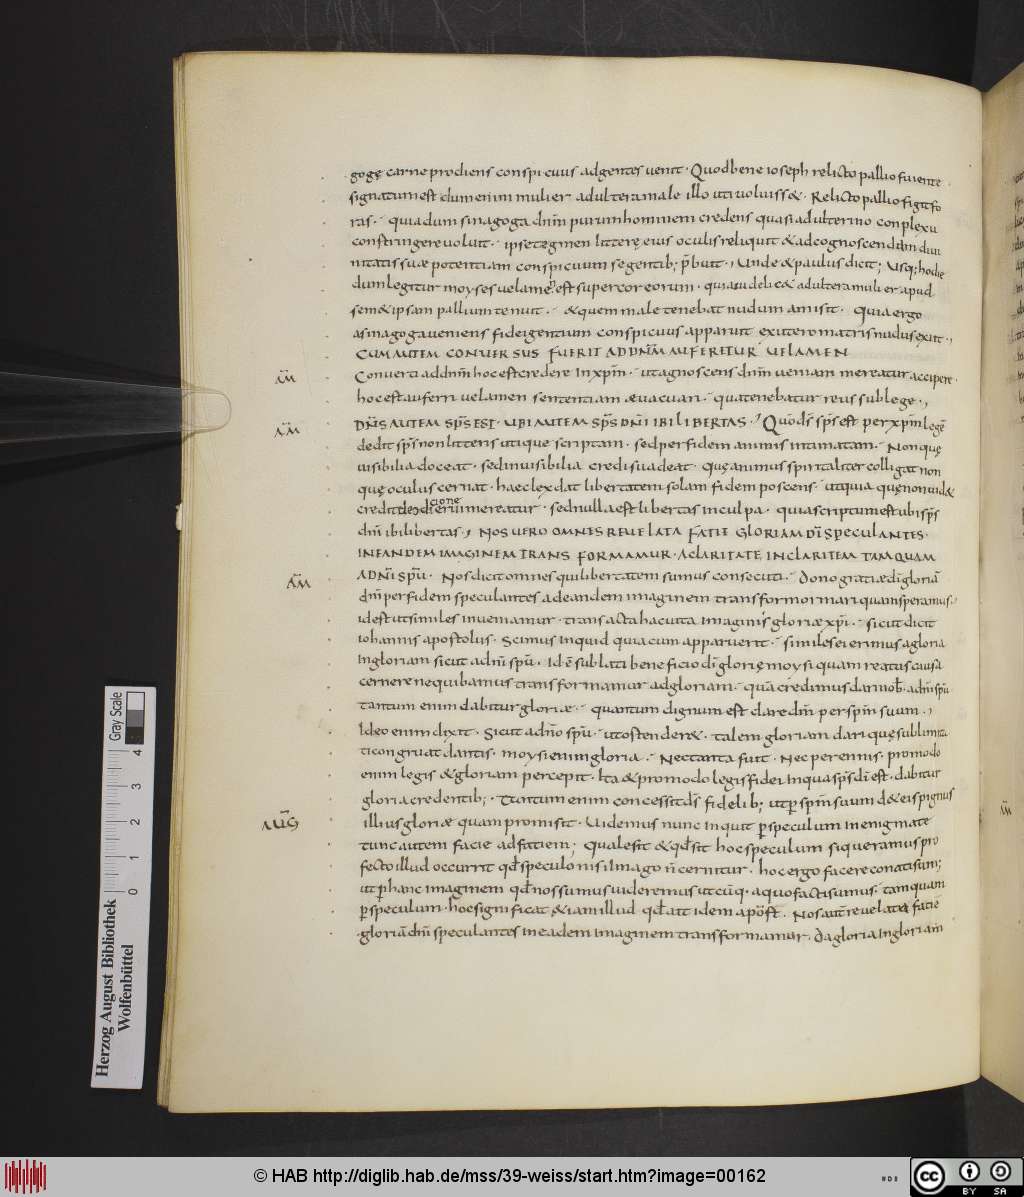 gogę carne prodiens conspicuus adgentes uenit · Quodbene ioseph relicto pallio fuiente
signatum est dum enim mulier adultera male illo uti uoluiss& · Relicto pallio fugit fo
ras · quia dum sinagoga dnm̄ purum hominem credens quasi adulterino conplexu
constringere uoluit · ipse tegmen litterę eius oculis reliquit & ad cognoscendam diui
nitatis suae potentiam conspicuum se gentib; p̄buit · Unde & paulus dicit; Usq; hodie
dum legitur moyses uelamen est super cor eorum · quia uidelic& adultera mulier apud
sem& ipsam pallium tenuit · & quem male tenebat nudum amisit · Quia ergo
a sinagoga ueniens fidei gentium conspicuus apparuit ex utero matris nudus exiit ·
CUM AUTEM CONUERSUS FUERIT AD DNM̄ AUFERETUR UELAMEN
AM̄
Conuerti ad dnm̄ hoc est credere in xpm̄ · ut agnoscens dnm̄ ueniam mereatur accipere ·
hoc est auferri uelamen sententiam æuacuari · qua tenebatur reus sub lege ·
AM̄
DN̄S AUTEM SPS̄ EST · UBI AUTEM SPS̄ DNĪ IBI LIBERTAS · Quod dn̄s sps̄ est per xpm̄ legē
dedit sps̄ non litteris utique scriptam · sed per fidem animis intimatam · Non quę
uisibilia doceat · sed inuisibilia credi suadeat · quę animus spiritaliter colligat non
quę oculus cernat · haec lex dat libertatem solam fidem poscens · ut quia quę non uid&
credit
cione
mereatur · sed nulla est libertas in culpa · quia scriptum est ubi sps̄
dnī ibi libertas · NOS UERO OMNES REUELATA FATIE GLORIAM DĪ SPECULANTES ·
IN EANDEM IMAGINEM TRANSFORMAMUR · A CLARITATE IN CLARITEM TAMQUAM
AM̄
A DNĪ SPŪ · Nos dicit omnes qui libertatem sumus consecuti · dono gratiæ dī gloriā
dnī per fidem speculantes ad eandem imaginem transformari quam speramus ·
id est ut similes inueniamur · transacta hac uita imaginis gloriæ xpī · sicut dicit
iohannis apostolus · Scimus inquid quia cum apparuerit · similes ei erimus a gloria
in gloriam sicut a dnī spū · Id ē sublati beneficio dī glorię moysi quam reatus causa
cernere nequibamus transformamur ad gloriam · quā credimus dari nob̄ · a dnī spū
tantum enim dabitur gloriæ · quantum dignum est clare dnī per spm̄ suum ·
Ideo enim dixit · Sicut a dnō spū · ut ostender& · talem gloriam dari quę sublimita
ti congruat dantis · moysi enim gloria · Nec tanta fuit · Nec perennis · pro modo
enim legis & gloriam percepit · Ita & pro modo legis fidei in qua sps̄ dī est · dabitur
gloria credentib; · Tantum enim concessit ds̄ fidelib; ut per spm̄ suum d& eis pignus
AUG̅
illius gloriæ quam promisit · Uidemus nunc inquit p̄ speculum in enigmate
tunc autem facie ad fatiem; Quale sit & qd̄ sit hoc speculum si queramus pro
fecto illud occurrit qd̄ in speculo nisi imago n̄ cernitur · hoc ergo facere conati sum;
ut p̄ hanc imaginem qd̄ nos sumus uideremus utcūq· a quo facti sumus tamquam
p̄ speculum · hoc significat & iam illud qd̄ ait idem apost̄ · Nos aut̄ reuelata fatiē
gloriā dnī speculantes in eadem imaginem transformamur · de gloria in gloriam
Herzog August Bibliothek
Wolfenbüttel
Gray Scale
0 1 2 3 4
© HAB http://diglib.hab.de/mss/39-weiss/start.htm?image=00162
cc BY SA